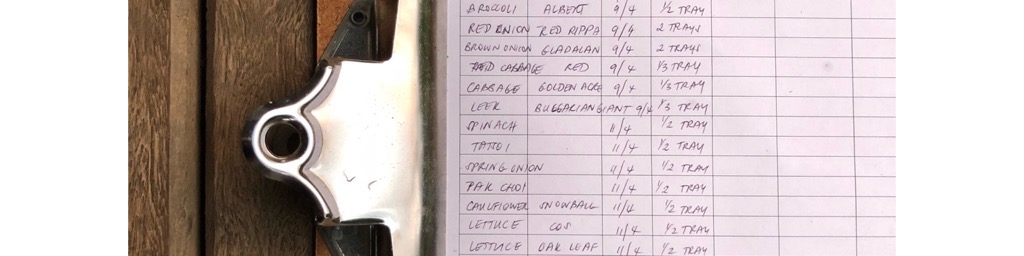 BROCCOLI ALBERT 9/4 1/2 TRAY
RED ONION RED RIPPA 9/4 2 TRAYS
BROWN ONION GLADALAN 9/4 2 TRAYS
RED CABBAGE RED 9/4 1/3 TRAY
CABBAGE GOLDEN ACRE 9/4 1/3 TRAY
LEEK BULGARIAN GIANT 9/4 1/3 TRAY
SPINACH 11/4 1/2 TRAY
TATSOI 11/4 1/2 TRAY
SPRING ONION 11/4 1/2 TRAY
PAK CHOI 11/4 1/2 TRAY
CAULIFLOWER SNOWBALL 11/4 1/2 TRAY
LETTUCE COS 11/4 1/2 TRAY
LETTUCE OAK LEAF 11/4 1/2 TRAY